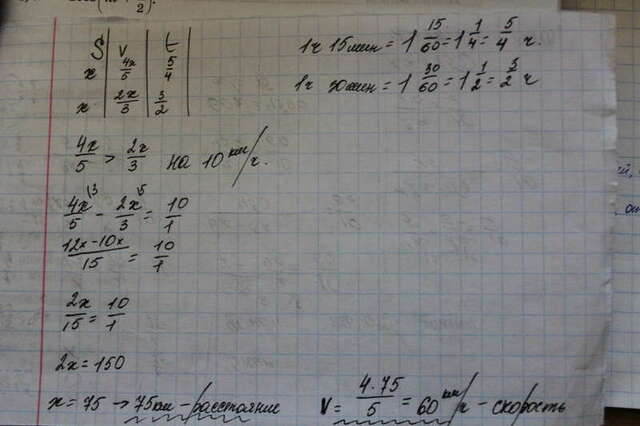 S | v | t
x | 4x/5 | 5/4
x | 2x/3 | 3/2
1ч 15мин = 1 15/60 = 1 1/4 = 5/4 ч.
1ч 30мин = 1 30/60 = 1 1/2 = 3/2 ч
4x/5 > 2x/3 на 10 км/ч.
4x\3/5 - 2x\5/3 = 10/1
12x-10x/15 = 10/1
2x/15 = 10/1
2x = 150
x = 75 → 75км - расстояние
V = 4·75/5 = 60 км/ч - скорость